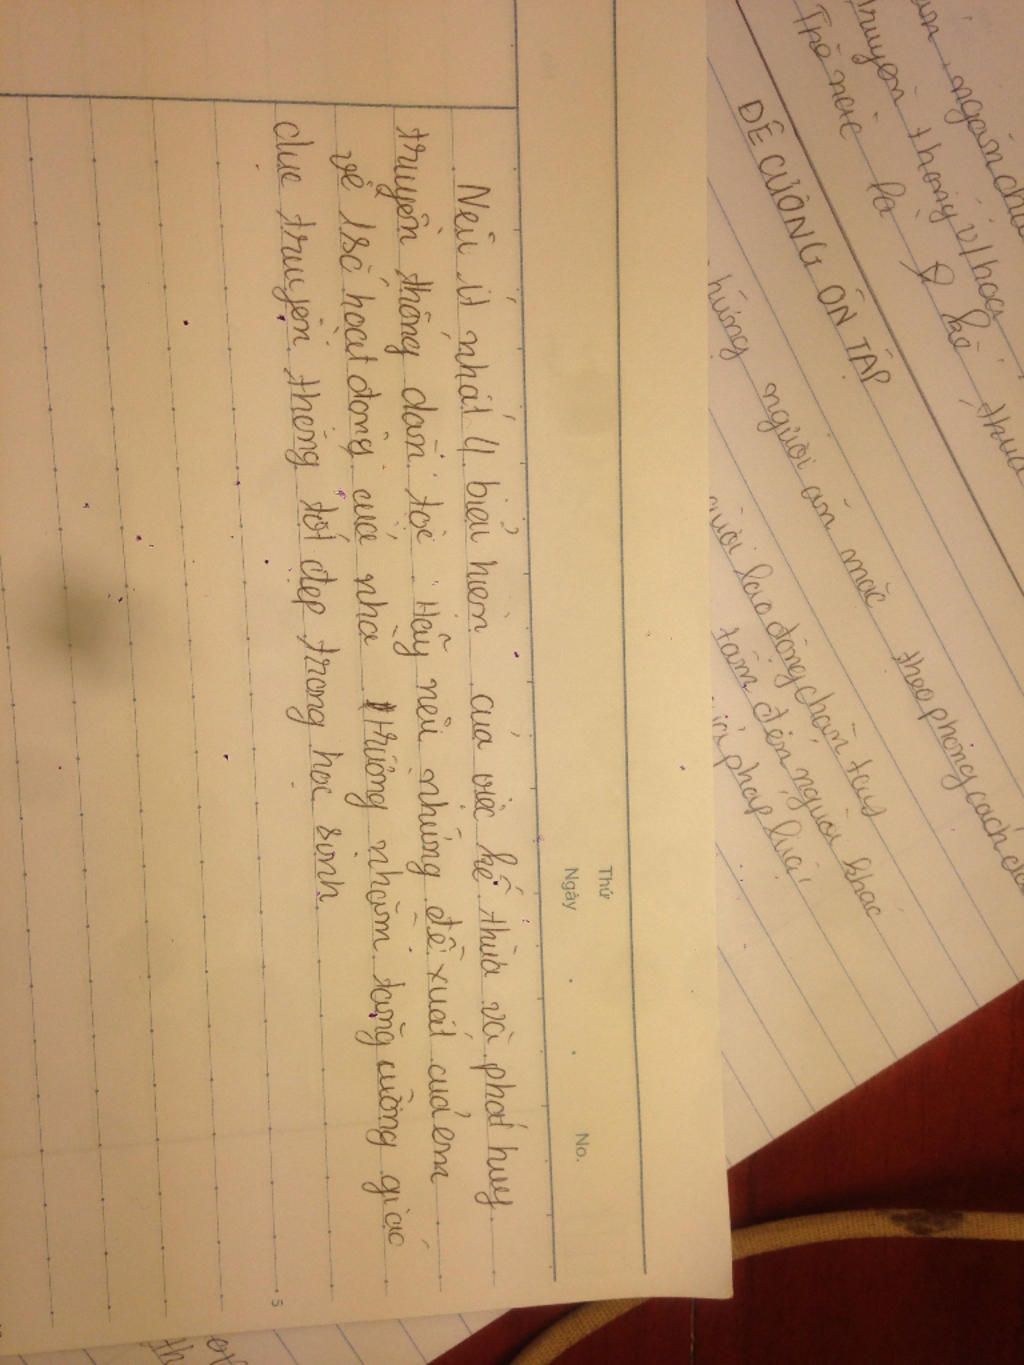 Thứ
Ngày
No.
Nêu ít nhất 4 biểu hiện của việc kế thừa và phát huy
truyền thống dân tộc. Hãy nêu những đề xuất của em
về 1 số hoạt động của nhà trường nhằm tăng cường giáo
dục truyền thống tốt đẹp trong học sinh.
5
ngắn
truyền thống v/hoá
Thế nào là kế thừa
ĐỀ CƯƠNG ÔN TẬP
người ăn mặc theo phong cách
lao động chân tay
tâm đến người khác
pháp luật